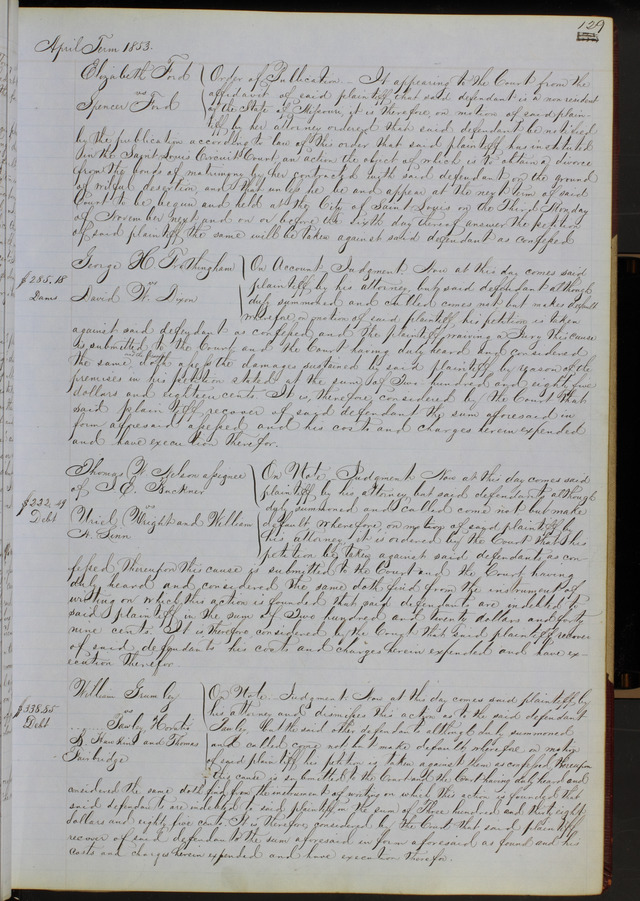 129
April Term 1853.
Elizabeth Ford
vs
Spencer Ford
Order of Publication. It appearing to the Court from the
affidavit of said plaintiff, that said defendant is a non resident
of the State of Missouri, it is therefore, on motion of said plain-
tiff by her attorney ordered that said defendant be notified
by the publication according to law of this order that said plaintiff has instituted
in the Saint Louis Circuit Court, an action the object of which is to obtain a divorce
from the bonds of matrimony by her contracted with said defendant on the ground
of wilful desertion, and that unless he be and appear at the next term of said
Court to be begun and held at the City of Saint Louis on the Third Monday
of November next and on or before the sixth day thereof answer the petition
of said plaintiff the same will be taken against said defendant as confessed
$285.18
Dams
George H Frothingham
vs
David W. Dixon
On Account, Judgment. Now at this day comes said
plaintiff by his attorney, but said defendant although
duly summoned and called comes not but makes default
wherefore on motion of said plaintiff, his petition is taken
against said defendant as confessed and the plaintiff waiving a Jury this cause
is submitted to the Court, and the Court having duly heard and considered
the same, doth assess the damages sustained by said plaintiff by reason of the
premises in his petition stated at the sum of Two hundred and eighty five
dollars and eighteen cents. It is, therefore, considered by the Court that
said plaintiff recover of said defendant the sum aforesaid in
form aforesaid assessed and his costs and charges herein expended
and have execution therefor.
Debt
Thomas
assignee
of
Buckner
vs
Uriel Wright and William
On Note. Judgment. Now at this day comes said
plaintiff by his attorney, but said defendants although
duly summoned and called come not but make
default wherefore, on motion of said plaintiff by
his attorney, it is ordered by the Court that his
petition be taken against said defendants, as con-
fessed, thereupon this cause is submitted to the Court and the Court having
duly heard and considered the same doth find from the instrument of
writing on which this action is founded that said defendants are indebted to
said plaintiff in the sum of Two hundred and
dollars and forty
nine cents. It is therefore considered by the Court that said plaintiff recover
of said defendants his costs and charges herein expended and have ex-
ecution therefor.
$338.85
Debt
William Grumley
vs
Hawkins and Thomas
On Note. Judgment. Now at this day comes said plaintiff by
his attorney and dismisses this action as to the said defendant
but the said other defendants although duly summoned
and called come not but make default wherefore on motion
of said plaintiff his petition is taken against them as confessed, thereupon
this cause is submitted to the Court and the Court having duly heard and
considered the same doth find from the instrument of writing on which this action is founded that
said defendants are indebted to said plaintiff in the sum of Three hundred and thirty eight
dollars and eighty five cents. It is therefore considered by the Court that said plaintiff
recover of said defendants the sum aforesaid in form aforesaid as found and his
costs and charges herein expended and have execution therefor.